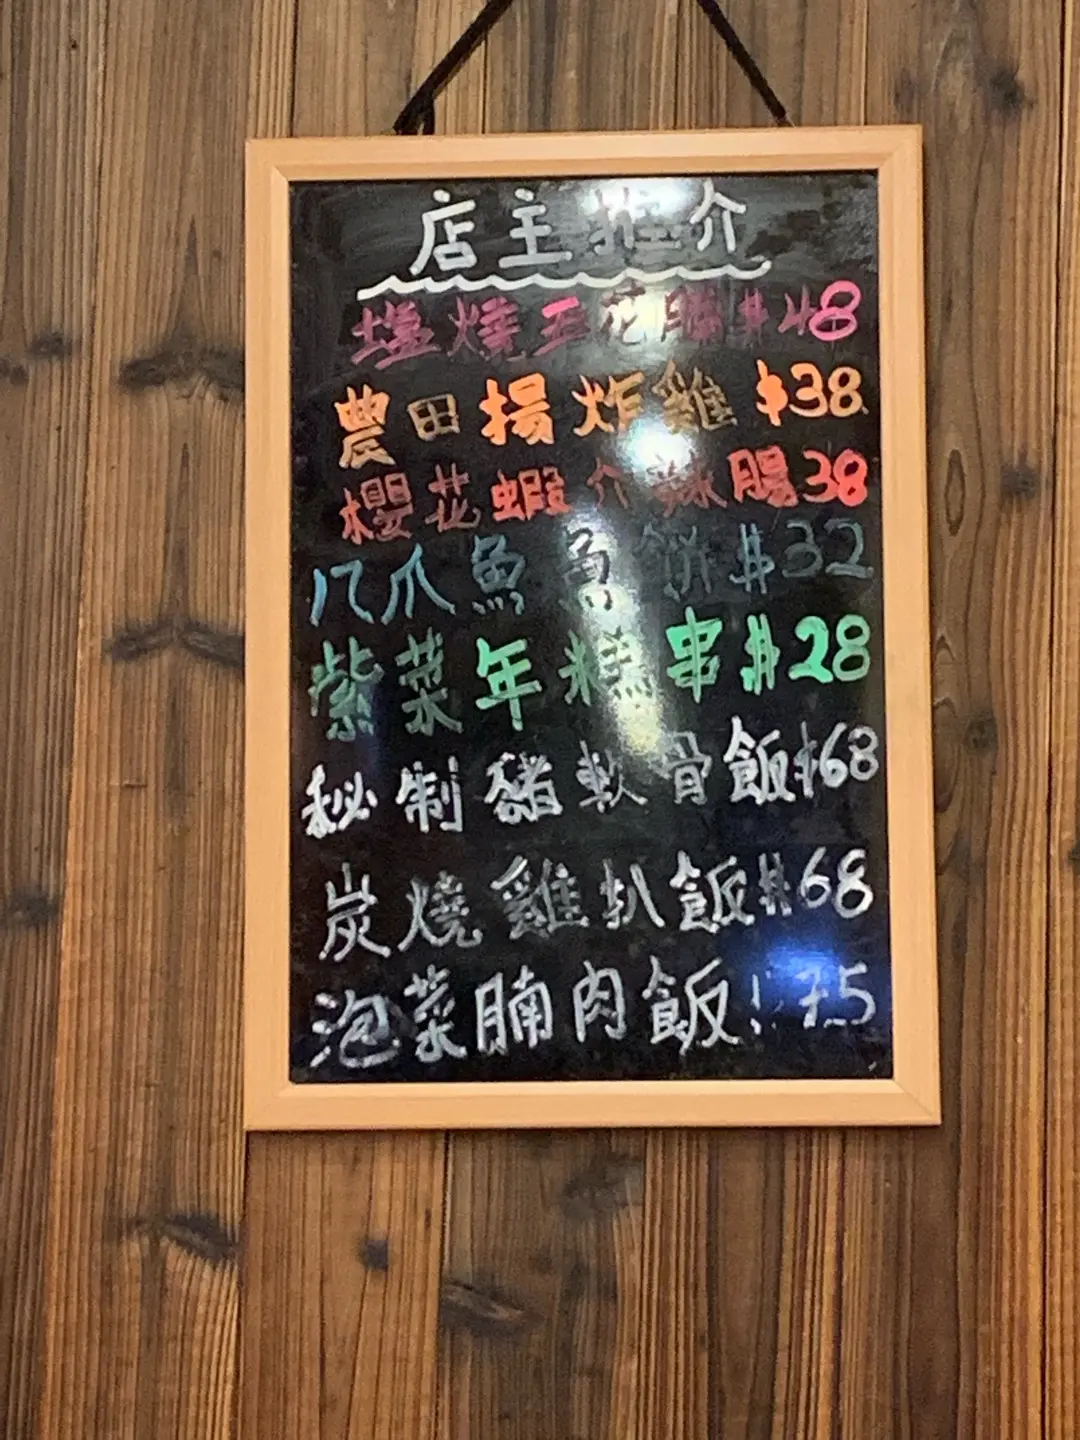 店主推介
塩燒五花腩$48
農田揚炸雞$38
櫻花蝦介辣腸38
八爪魚 餅$32
紫菜年糕串$28
秘制豬軟骨飯$68
炭燒雞扒飯$68
泡菜腩肉飯 75